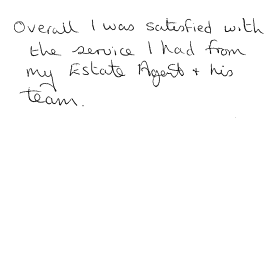 Overall I was satisfied with
the service I had from
my Estate Agent + his
team.